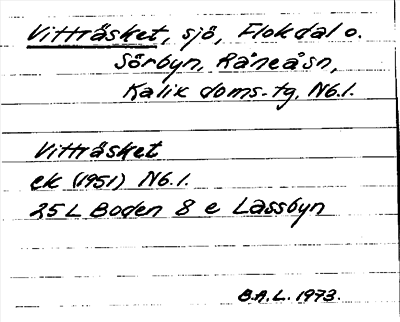 Vitträsket, sjö, Flokdal o.
Sörbyn, Råneå sn,
Kalix doms.tg, Nb.l.
Vitträsket
ek (1951) Nb.l.
25 L Boden 8 e Lassbyn
B.A.L. 1973.